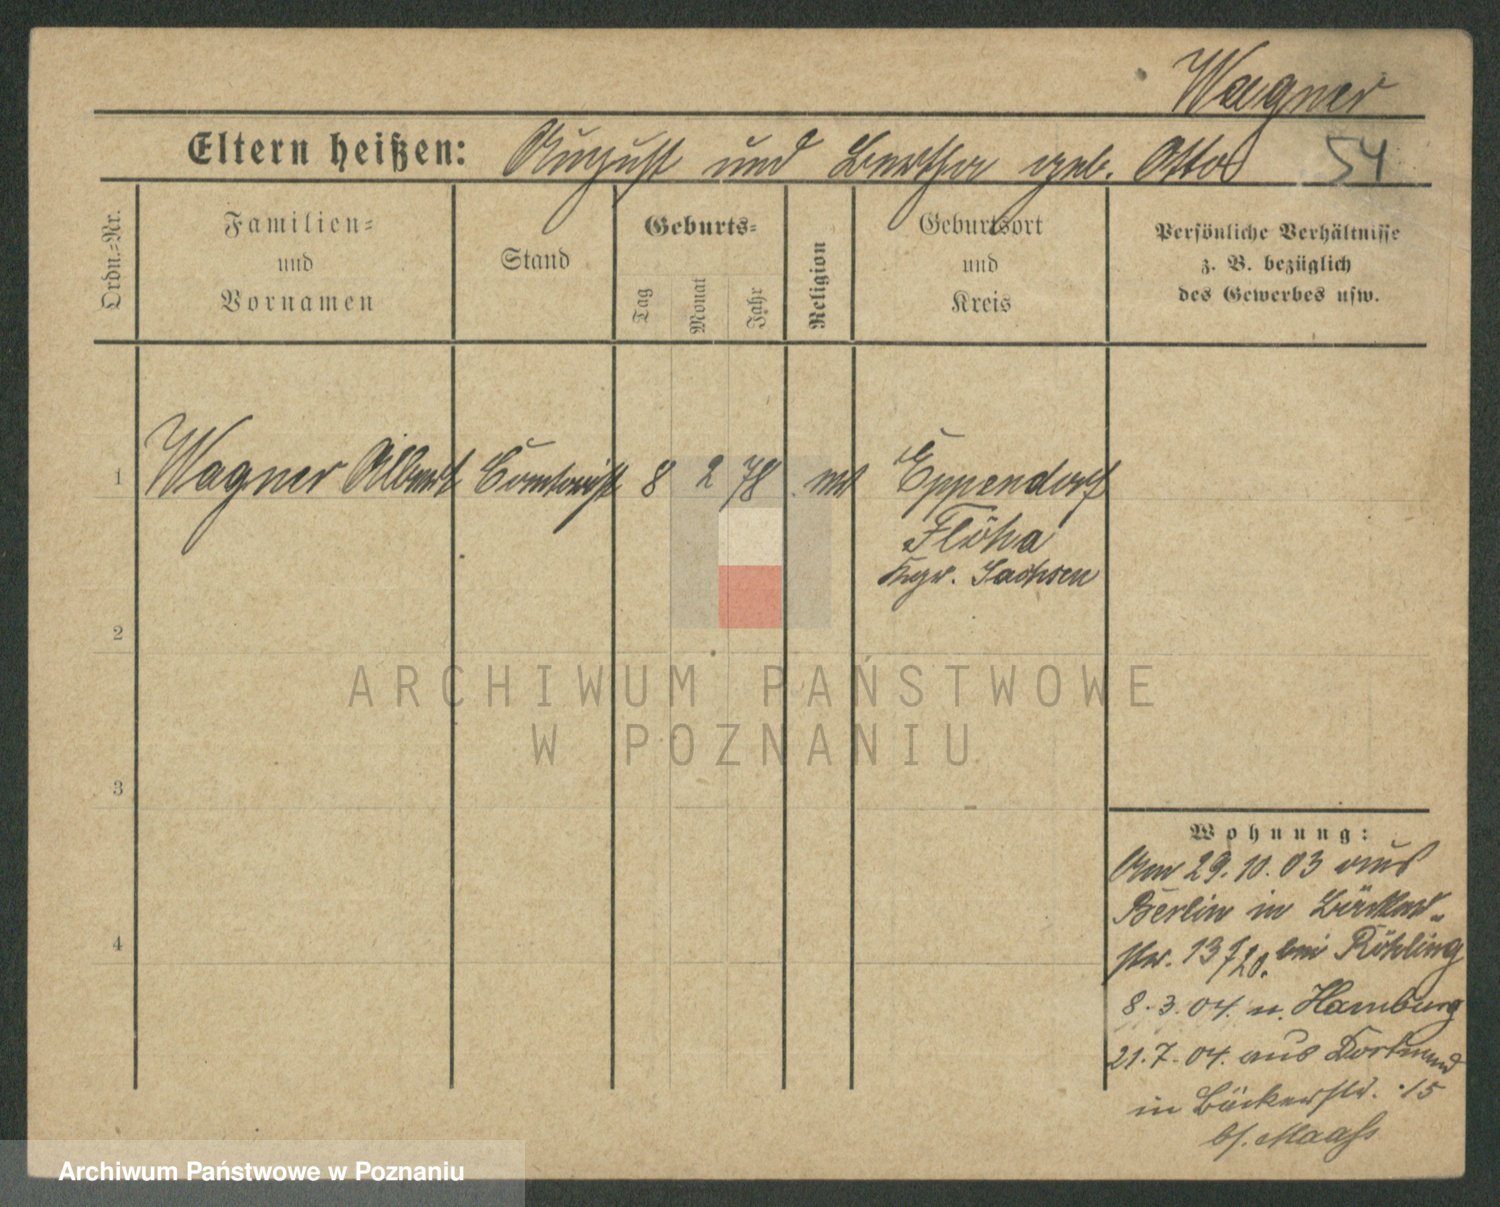 Wagner
Eltern heißen: August und Bertha geb. Otto
54
Ordn.=Nr.
Familien=
und
Vornamen
Stand
Geburts=
Tag
Monat
Jahr
Religion
Geburtsort
und
Kreis
Persönliche Verhältnisse
z. B. bezüglich
des Gewerbes usw.
1 Wagner Albert Comtorist 8 2 78 Eppendorf
Flöha
Kgr. Sachsen
2
3
4
Wohnung:
Am 29.10.03 aus
Berlin in Bäcker-
str. 13 bei Röhling
8.3.04. n. Hamburg
21.7.04. aus Dortmund
in Bäckerstr. 15
b/. Maaß
ARCHIWUM PAŃSTWOWE
W POZNANIU
Archiwum Państwowe w Poznaniu